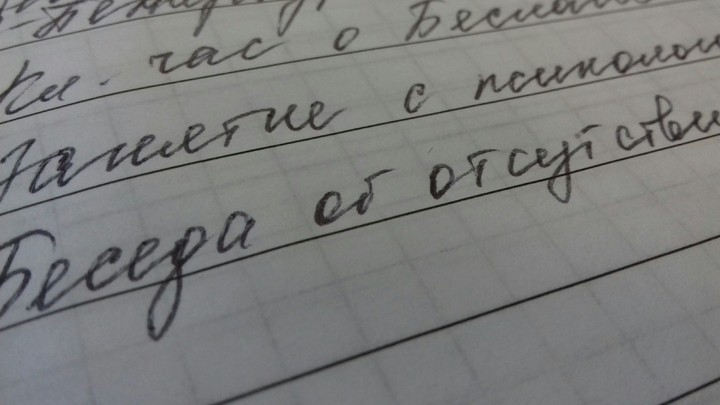 Кл. час о Беслане
Занятие с психологом
Беседа об отсутствии